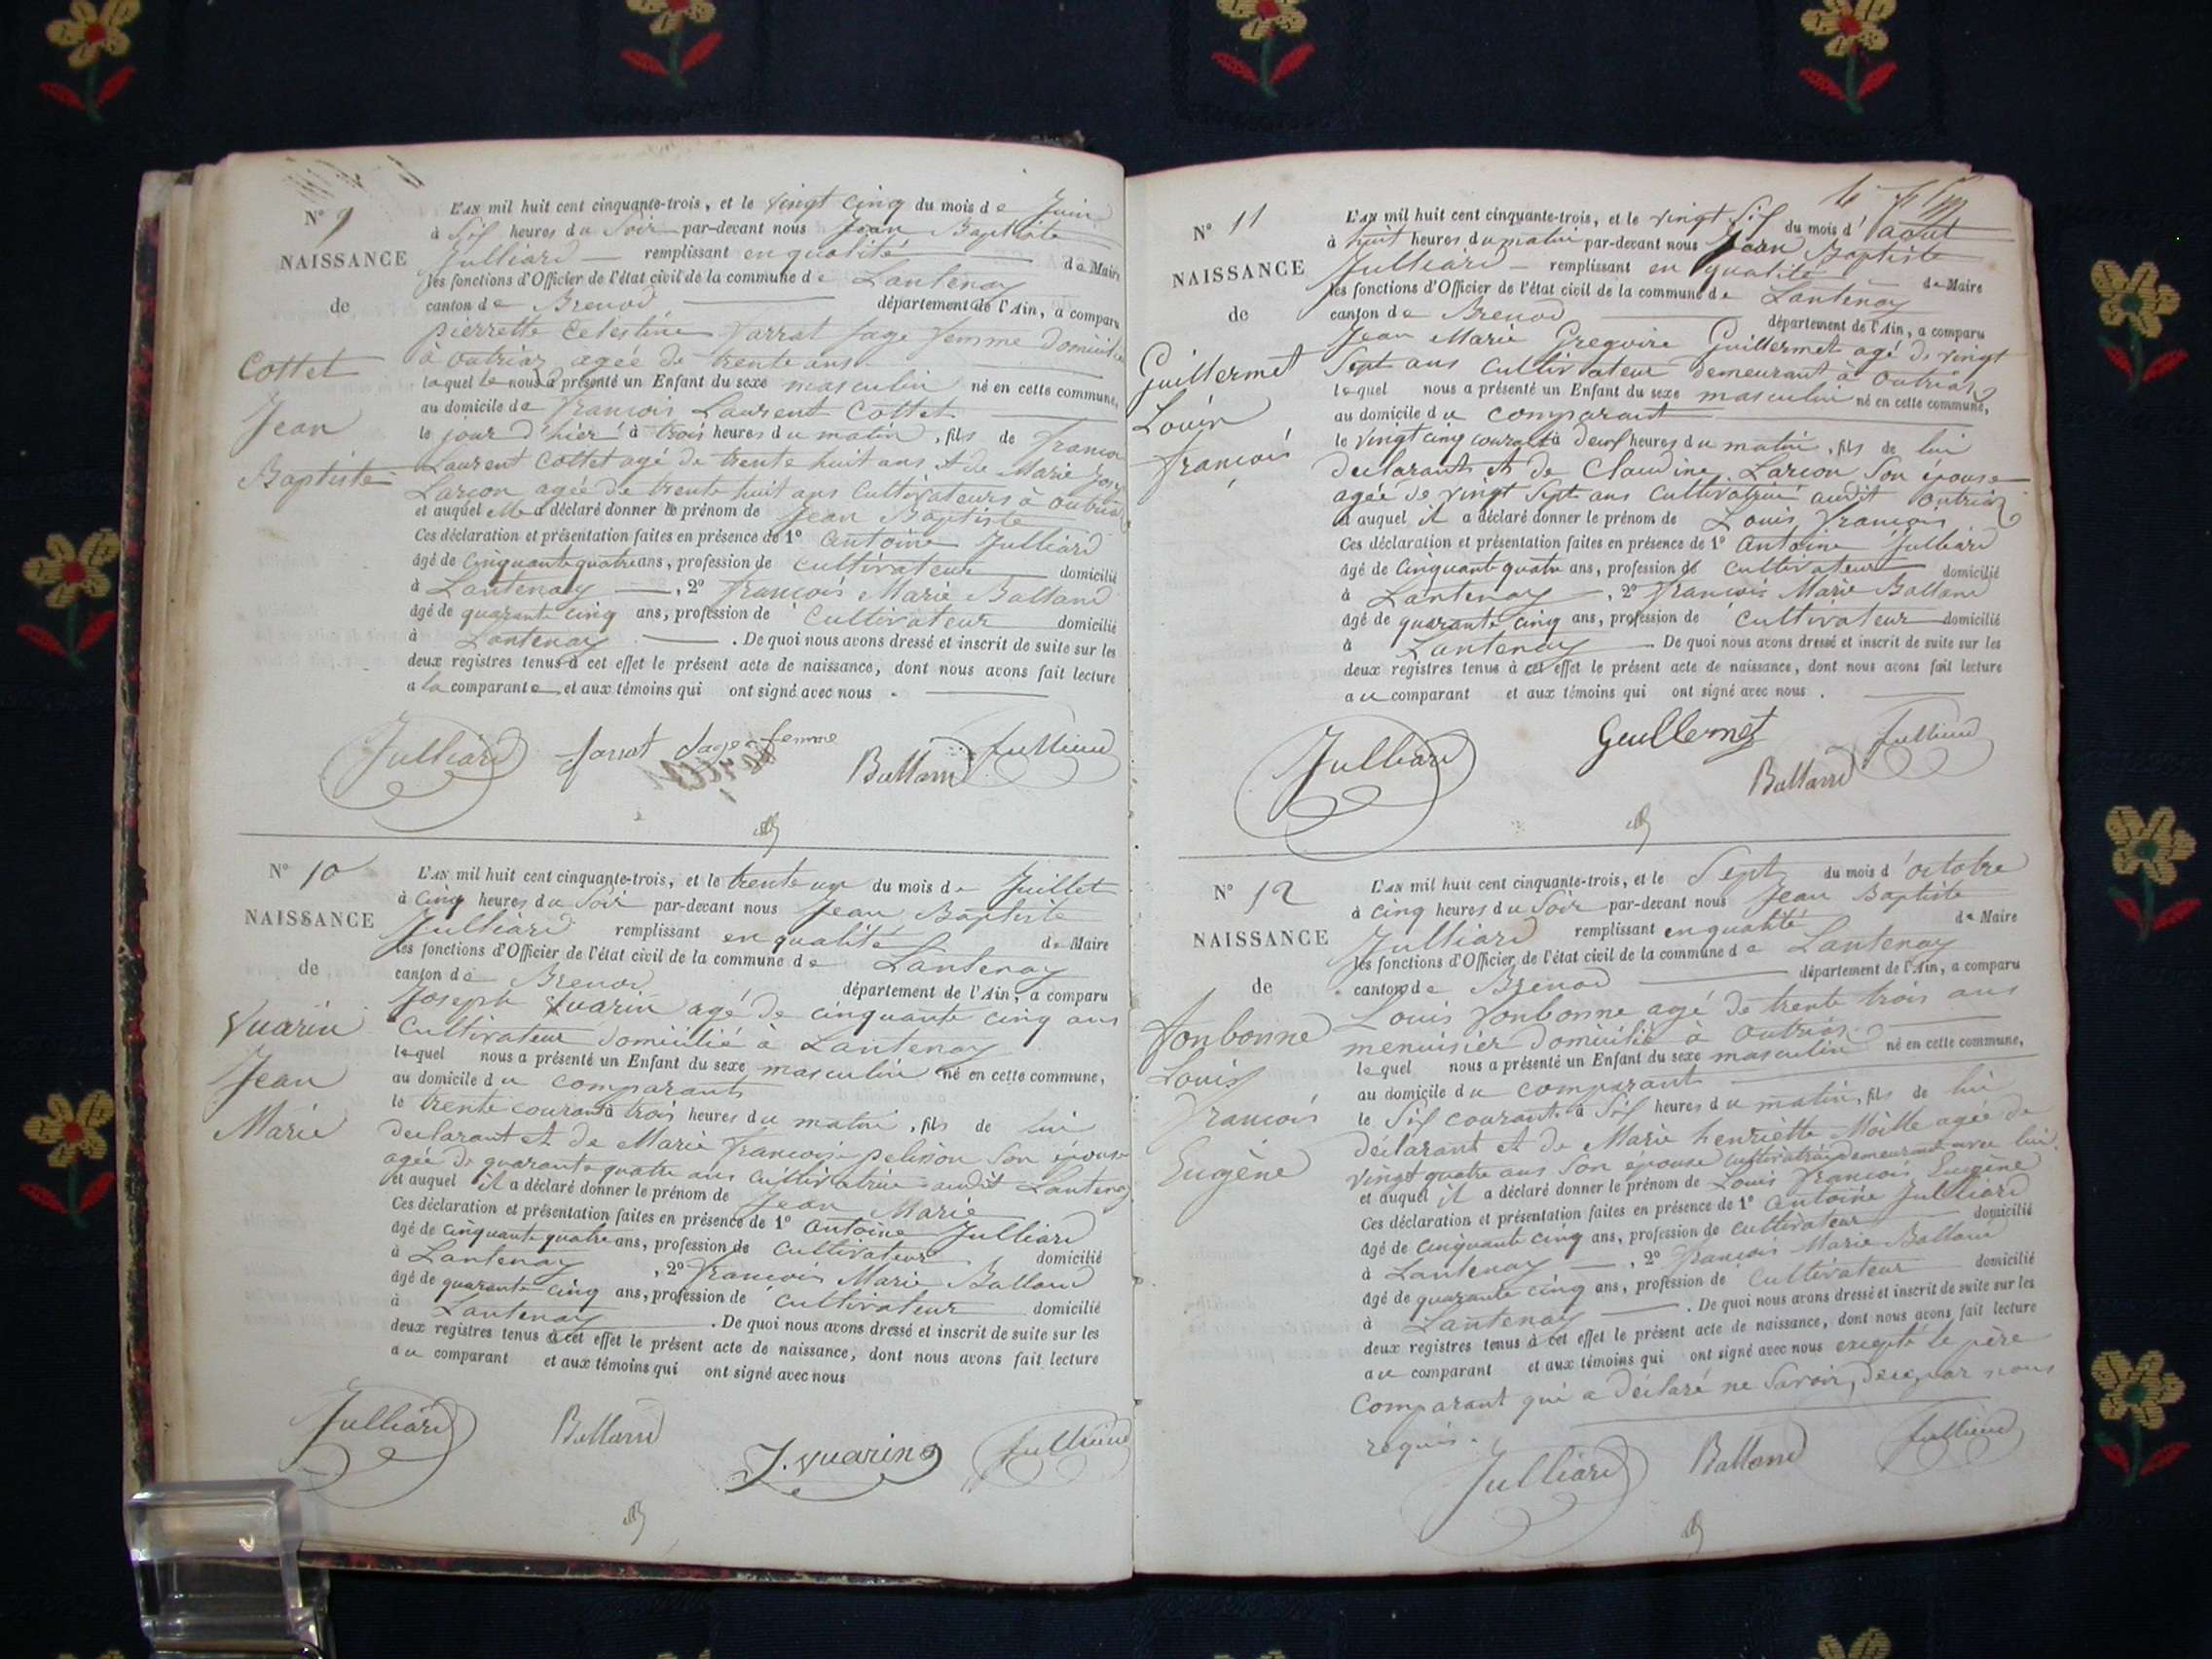 N° 9
NAISSANCE
de
Cottet
Jean
Baptiste
L'AN mil huit cent cinquante-trois, et le vingt cinq du mois de Juin
à Six heures du Soir par-devant nous Jean Baptiste
Julliard remplissant en qualité de Maire
les fonctions d'Officier de l'état civil de la commune de Lantenay
canton de Brenod département de l'Ain, a comparu
pierrette Celestine Jarrat Sage femme domiciliée
à outriaz agée de trente ans
laquelle nous a présenté un Enfant du sexe masculin né en cette commune,
au domicile de françois Laurent Cottet
le jour d'hier à trois heures du matin, fils de françois
Laurent Cottet agé de trente huit ans et de Marie
Larçon agée de trente huit ans Cultivateurs à outriaz
et auquel elle a déclaré donner le prénom de Jean Baptiste
Ces déclaration et présentation faites en présence de 1° antoine Julliard
âgé de Cinquante quatre ans, profession de cultivateur domicilié
à Lantenay , 2° françois Marie Balland
âgé de quarante cinq ans, profession de Cultivateur domicilié
à Lantenay . De quoi nous avons dressé et inscrit de suite sur les
deux registres tenus à cet effet le présent acte de naissance, dont nous avons fait lecture
a la comparante et aux témoins qui ont signé avec nous .
Julliard Jarrat Sage femme Balland Julliard
N° 10
NAISSANCE
de
Vuarin
Jean
Marie
L'AN mil huit cent cinquante-trois, et le trente un du mois de Juillet
à Cinq heures du Soir par-devant nous Jean Baptiste
Julliard remplissant en qualité de Maire
les fonctions d'Officier de l'état civil de la commune de Lantenay
canton de Brenod département de l'Ain, a comparu
Joseph Vuarin agé de cinquante cinq ans
Cultivateur domicilié à Lantenay
lequel nous a présenté un Enfant du sexe masculin né en cette commune,
au domicile du comparant
le trente courant à trois heures du matin, fils de lui
declarant et de Marie françoise pelisson Son épouse
agée de quarante quatre ans cultivatrice audit Lantenay
et auquel il a déclaré donner le prénom de Jean Marie
Ces déclaration et présentation faites en présence de 1° antoine Julliard
âgé de cinquante quatre ans, profession de cultivateur domicilié
à Lantenay , 2° françois Marie Balland
âgé de quarante cinq ans, profession de cultivateur domicilié
à Lantenay . De quoi nous avons dressé et inscrit de suite sur les
deux registres tenus à cet effet le présent acte de naissance, dont nous avons fait lecture
au comparant et aux témoins qui ont signé avec nous
Julliard Balland J. Vuarin Julliard
N° 11
NAISSANCE
de
Guillermet
Louis
françois
L'AN mil huit cent cinquante-trois, et le vingt Six du mois d'août
à huit heures du matin par-devant nous Jean Baptiste
Julliard remplissant en qualité de Maire
les fonctions d'Officier de l'état civil de la commune de Lantenay
canton de Brenod département de l'Ain, a comparu
Jean Marie Gregoire Guillermet agé de vingt
Sept ans cultivateur demeurant à outriaz
lequel nous a présenté un Enfant du sexe masculin né en cette commune,
au domicile du comparant
le vingt cinq courant à deux heures du matin, fils de lui
declarant et de Claudine Larçon Son épouse
agée de vingt Sept ans cultivatrice audit outriaz
et auquel il a déclaré donner le prénom de Louis françois
Ces déclaration et présentation faites en présence de 1° antoine Julliard
âgé de cinquante quatre ans, profession de cultivateur domicilié
à Lantenay , 2° françois Marie Balland
âgé de quarante cinq ans, profession de cultivateur domicilié
à Lantenay De quoi nous avons dressé et inscrit de suite sur les
deux registres tenus à cet effet le présent acte de naissance, dont nous avons fait lecture
au comparant et aux témoins qui ont signé avec nous .
Julliard Guillermet Balland Julliard
N° 12
NAISSANCE
de
fonbonne
Louis
françois
Eugène
L'AN mil huit cent cinquante-trois, et le Sept du mois d'octobre
à cinq heures du Soir par-devant nous Jean Baptiste
Julliard remplissant en qualité de Maire
les fonctions d'Officier de l'état civil de la commune de Lantenay
canton de Brenod département de l'Ain, a comparu
Louis fonbonne agé de trente trois ans
menuisier domicilié à outriaz
lequel nous a présenté un Enfant du sexe masculin né en cette commune,
au domicile du comparant
le Six courant à Six heures du matin, fils de lui
déclarant et de Marie henriette Moille agée de
vingt quatre ans Son épouse cultivatrice demeurant avec lui
et auquel il a déclaré donner le prénom de Louis françois Eugène
Ces déclaration et présentation faites en présence de 1° antoine Julliard
âgé de cinquante cinq ans, profession de cultivateur domicilié
à Lantenay , 2° françois Marie Balland
âgé de quarante cinq ans, profession de cultivateur domicilié
à Lantenay . De quoi nous avons dressé et inscrit de suite sur les
deux registres tenus à cet effet le présent acte de naissance, dont nous avons fait lecture
au comparant et aux témoins qui ont signé avec nous excepté le père
comparant qui a déclaré ne Savoir, de ce par nous
requis.
Julliard Balland Julliard